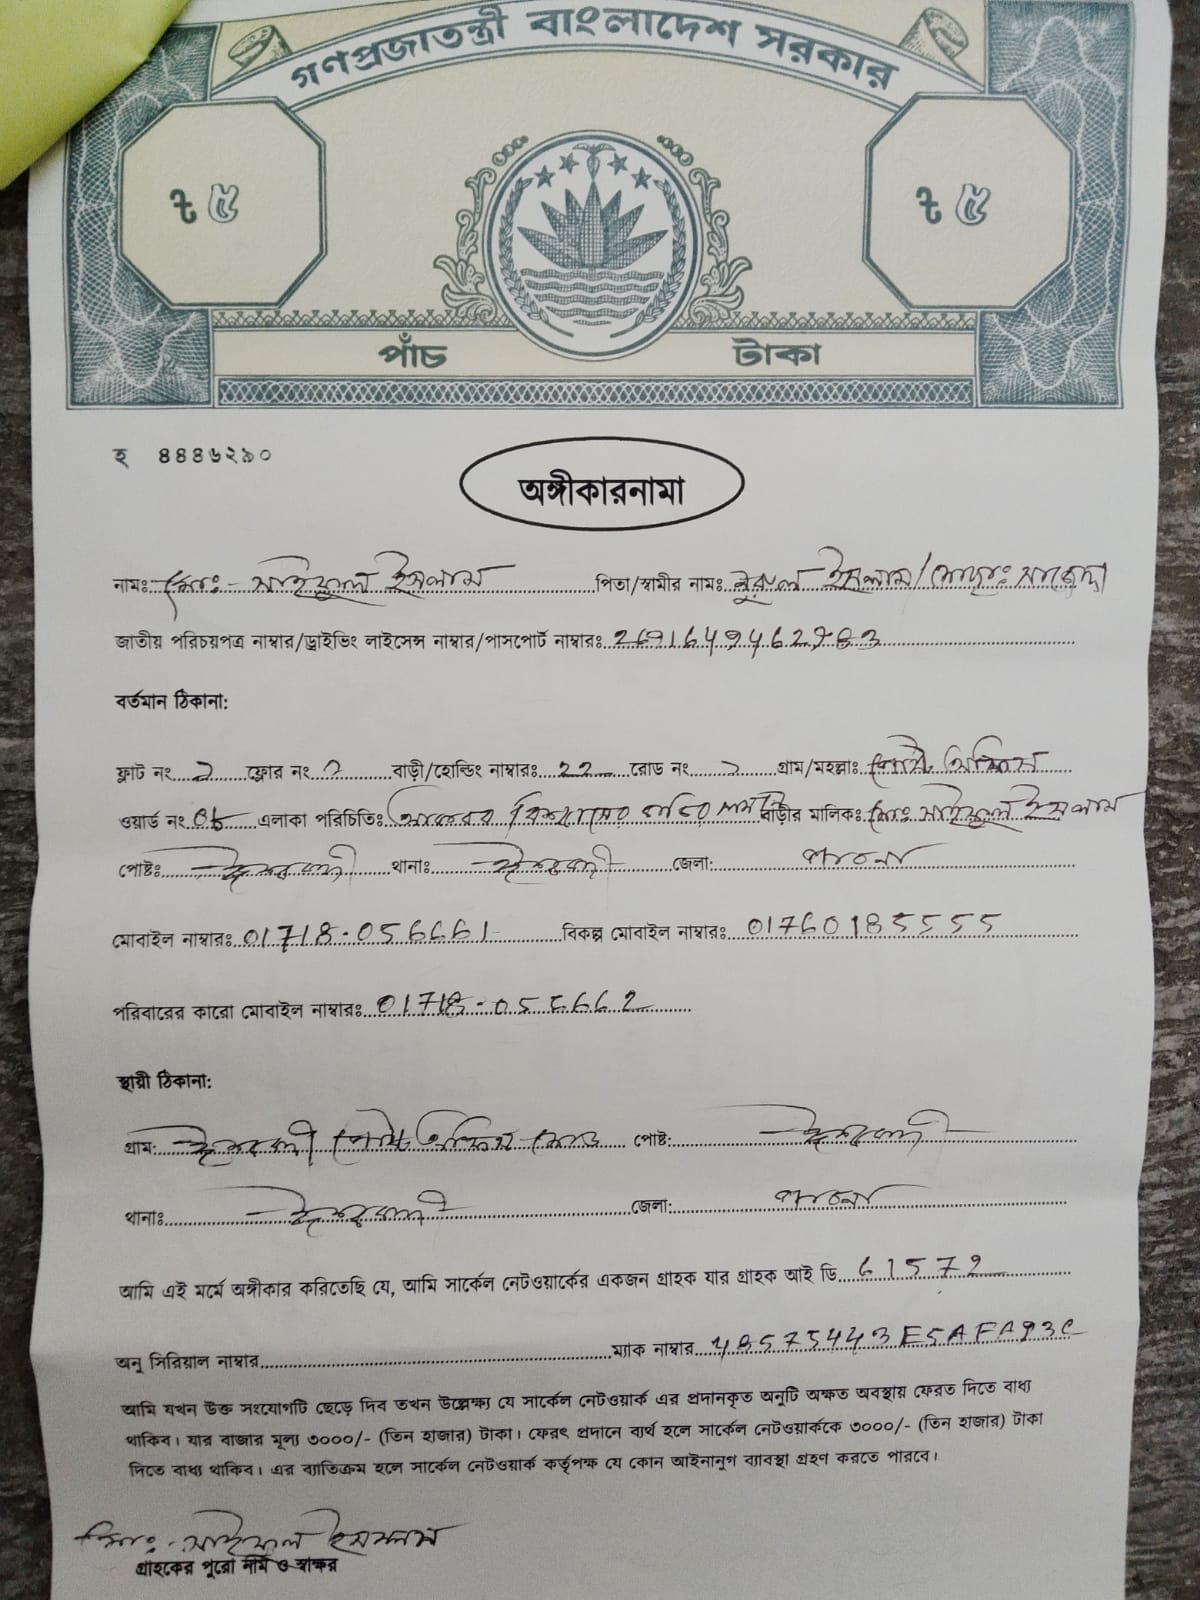 গণপ্রজাতন্ত্রী বাংলাদেশ সরকার
৳ ৫ ৳ ৫
পাঁচ টাকা
হ ৪৪৪৬২৯০
অঙ্গীকারনামা
নামঃ মোঃ- সাইফুল ইসলাম পিতা/স্বামীর নামঃ নুরুল ইসলাম/মোছাঃ
জাতীয় পরিচয়পত্র নাম্বার/ড্রাইভিং লাইসেন্স নাম্বার/পাসপোর্ট নাম্বারঃ
বর্তমান ঠিকানা:
ফ্লাট নং ফ্লোর নং বাড়ী/হোল্ডিং নাম্বারঃ রোড নং গ্রাম/মহল্লাঃ পোষ্ট অফিস
ওয়ার্ড নং এলাকা পরিচিতিঃ বাড়ীর মালিকঃ মোঃ সাইফুল ইসলাম
পোষ্টঃ ঈশ্বরদী থানাঃ ঈশ্বরদী জেলা: পাবনা
মোবাইল নাম্বারঃ 01718-056661 বিকল্প মোবাইল নাম্বারঃ 01760185555
পরিবারের কারো মোবাইল নাম্বারঃ
স্থায়ী ঠিকানা:
গ্রাম: ঈশ্বরদী পোষ্ট অফিস মোড় পোষ্ট: ঈশ্বরদী
থানাঃ ঈশ্বরদী জেলা: পাবনা
আমি এই মর্মে অঙ্গীকার করিতেছি যে, আমি সার্কেল নেটওয়ার্কের একজন গ্রাহক যার গ্রাহক আই ডি 61572
অনু সিরিয়াল নাম্বার ম্যাক নাম্বার
আমি যখন উক্ত সংযোগটি ছেড়ে দিব তখন উল্লেক্ষ্য যে সার্কেল নেটওয়ার্ক এর প্রদানকৃত অনুটি অক্ষত অবস্থায় ফেরত দিতে বাধ্য
থাকিব। যার বাজার মূল্য ৩০০০/- (তিন হাজার) টাকা। ফেরৎ প্রদানে ব্যর্থ হলে সার্কেল নেটওয়ার্ককে ৩০০০/- (তিন হাজার) টাকা
দিতে বাধ্য থাকিব। এর ব্যাতিক্রম হলে সার্কেল নেটওয়ার্ক কর্তৃপক্ষ যে কোন আইনানুগ ব্যাবস্থা গ্রহণ করতে পারবে।
মোঃ- সাইফুল ইসলাম
গ্রাহকের পুরো নাম ও স্বাক্ষর